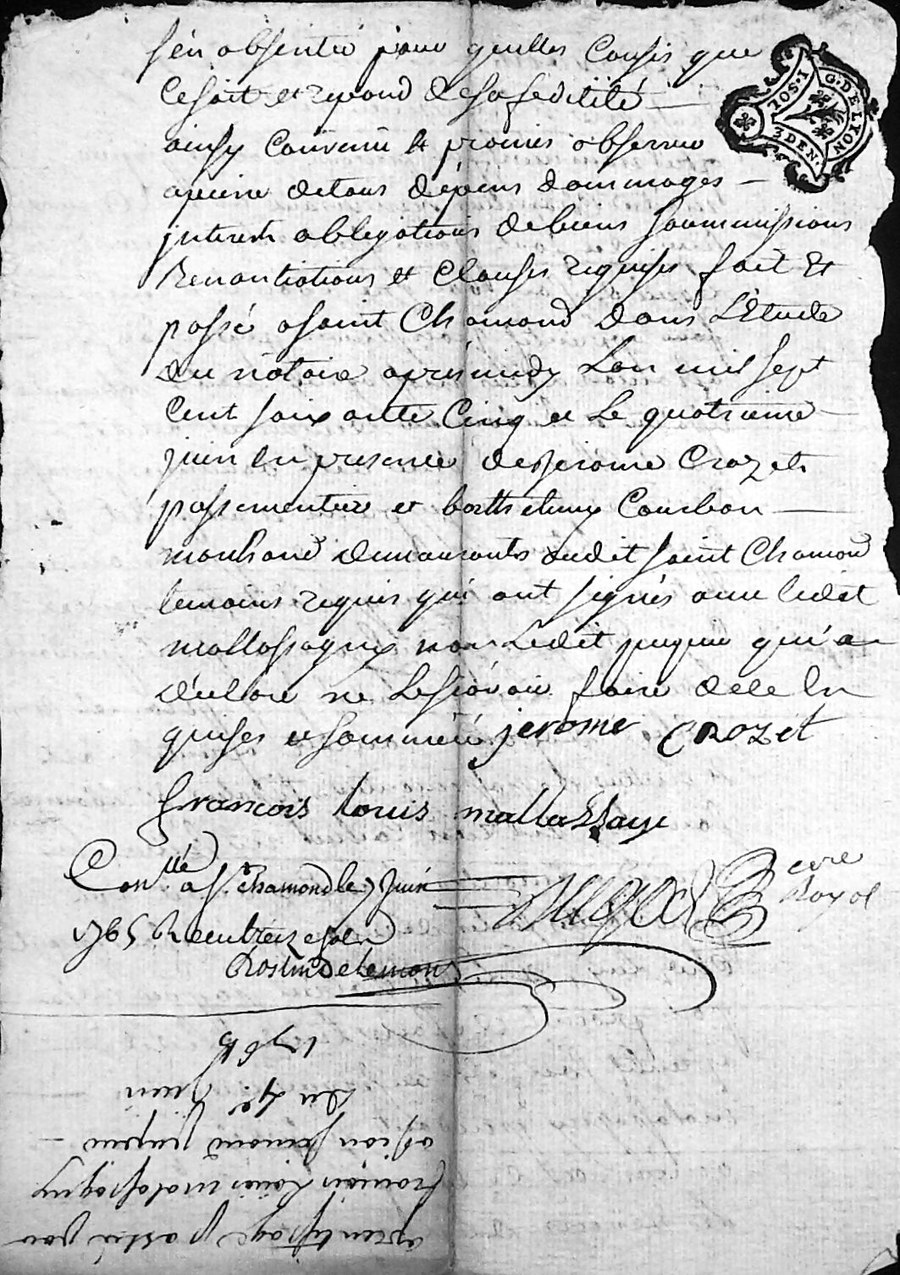 s'en absenter pour quelles causes que
ce soit et repond de sa fedellité
G. DE LYON
1. SOL.
3 DEN.
ainsy convenu et promis observer
a peine de tous depens dommages
interets obligations de biens soummissions
Renontiations et clauses requises fait et
passé a saint Chamond dans L'Etude
du notaire aprés midy L'an mil sept
cent soixante cinq et Le quatrieme
juin en presence de sr jerome Crozet
passementier et barthelemy Courbon
marchand demeurants audit saint Chamond
temoins requis qui ont signés avec ledit
mallassagny non Ledit qui a
déclaré ne Le sçavoir faire de ce en
quises et sommé jerome CROZET
francois louis mallassagni
Con.llé a St. chamond le 7 Juin
1765 R. treize sols
Rostin Delemon
Royal
avrentissage passé par
françois Louis malassagny
a sion
du 4e. Juin
1765